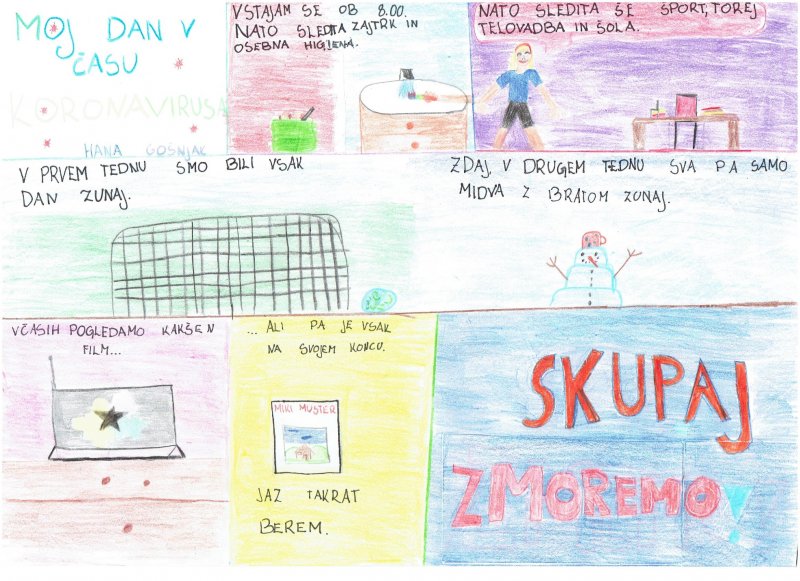 MOJ DAN V
ČASU
KORONAVIRUSA
HANA GOŠNJAK
VSTAJAM SE OB 8.00.
NATO SLEDITA ZAJTRK IN
OSEBNA HIGIENA.
NATO SLEDITA ŠE ŠPORT, TOREJ
TELOVADBA IN ŠOLA.
V PRVEM TEDNU SMO BILI VSAK
DAN ZUNAJ.
ZDAJ, V DRUGEM TEDNU SVA PA SAMO
MIDVA Z BRATOM ZUNAJ.
VČASIH POGLEDAMO KAKŠEN
FILM...
... ALI PA JE VSAK
NA SVOJEM KONCU.
MIKI MUSTER
JAZ TAKRAT
BEREM.
SKUPAJ
ZMOREMO!